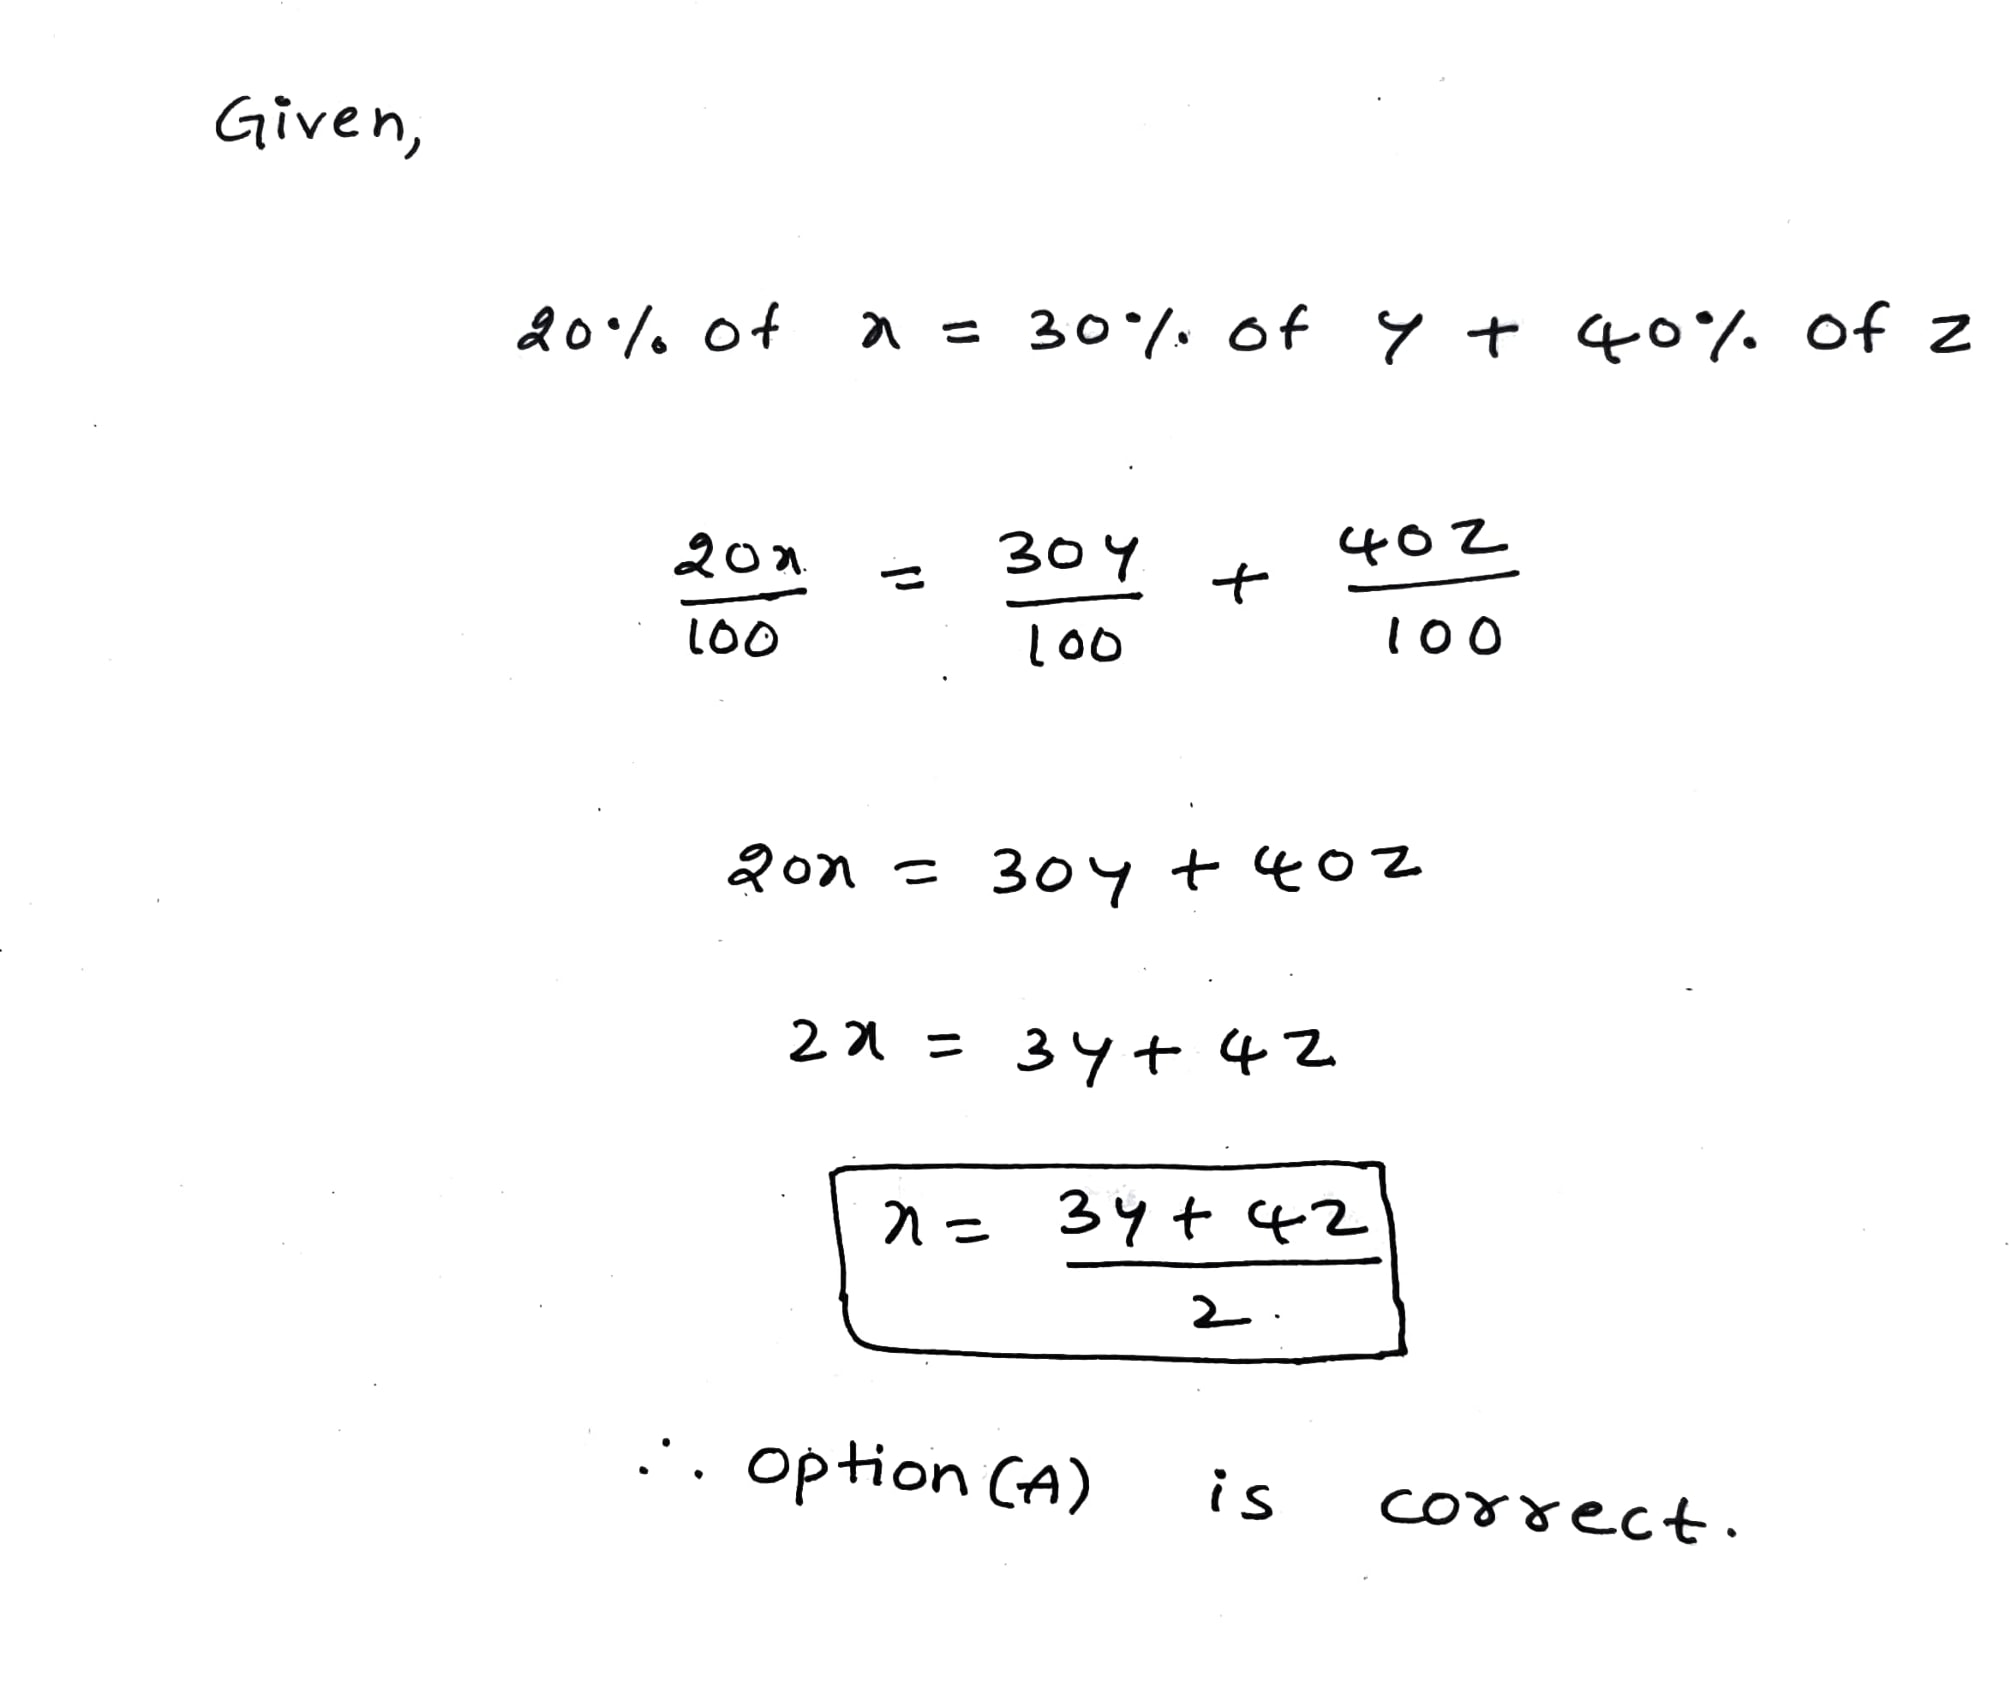 Given,
20% of x = 30% of y + 40% of z
20x/100 = 30y/100 + 40z/100
20x = 30y + 40z
2x = 3y + 4z
x = 3y + 4z / 2.
∴ Option (A) is correct.